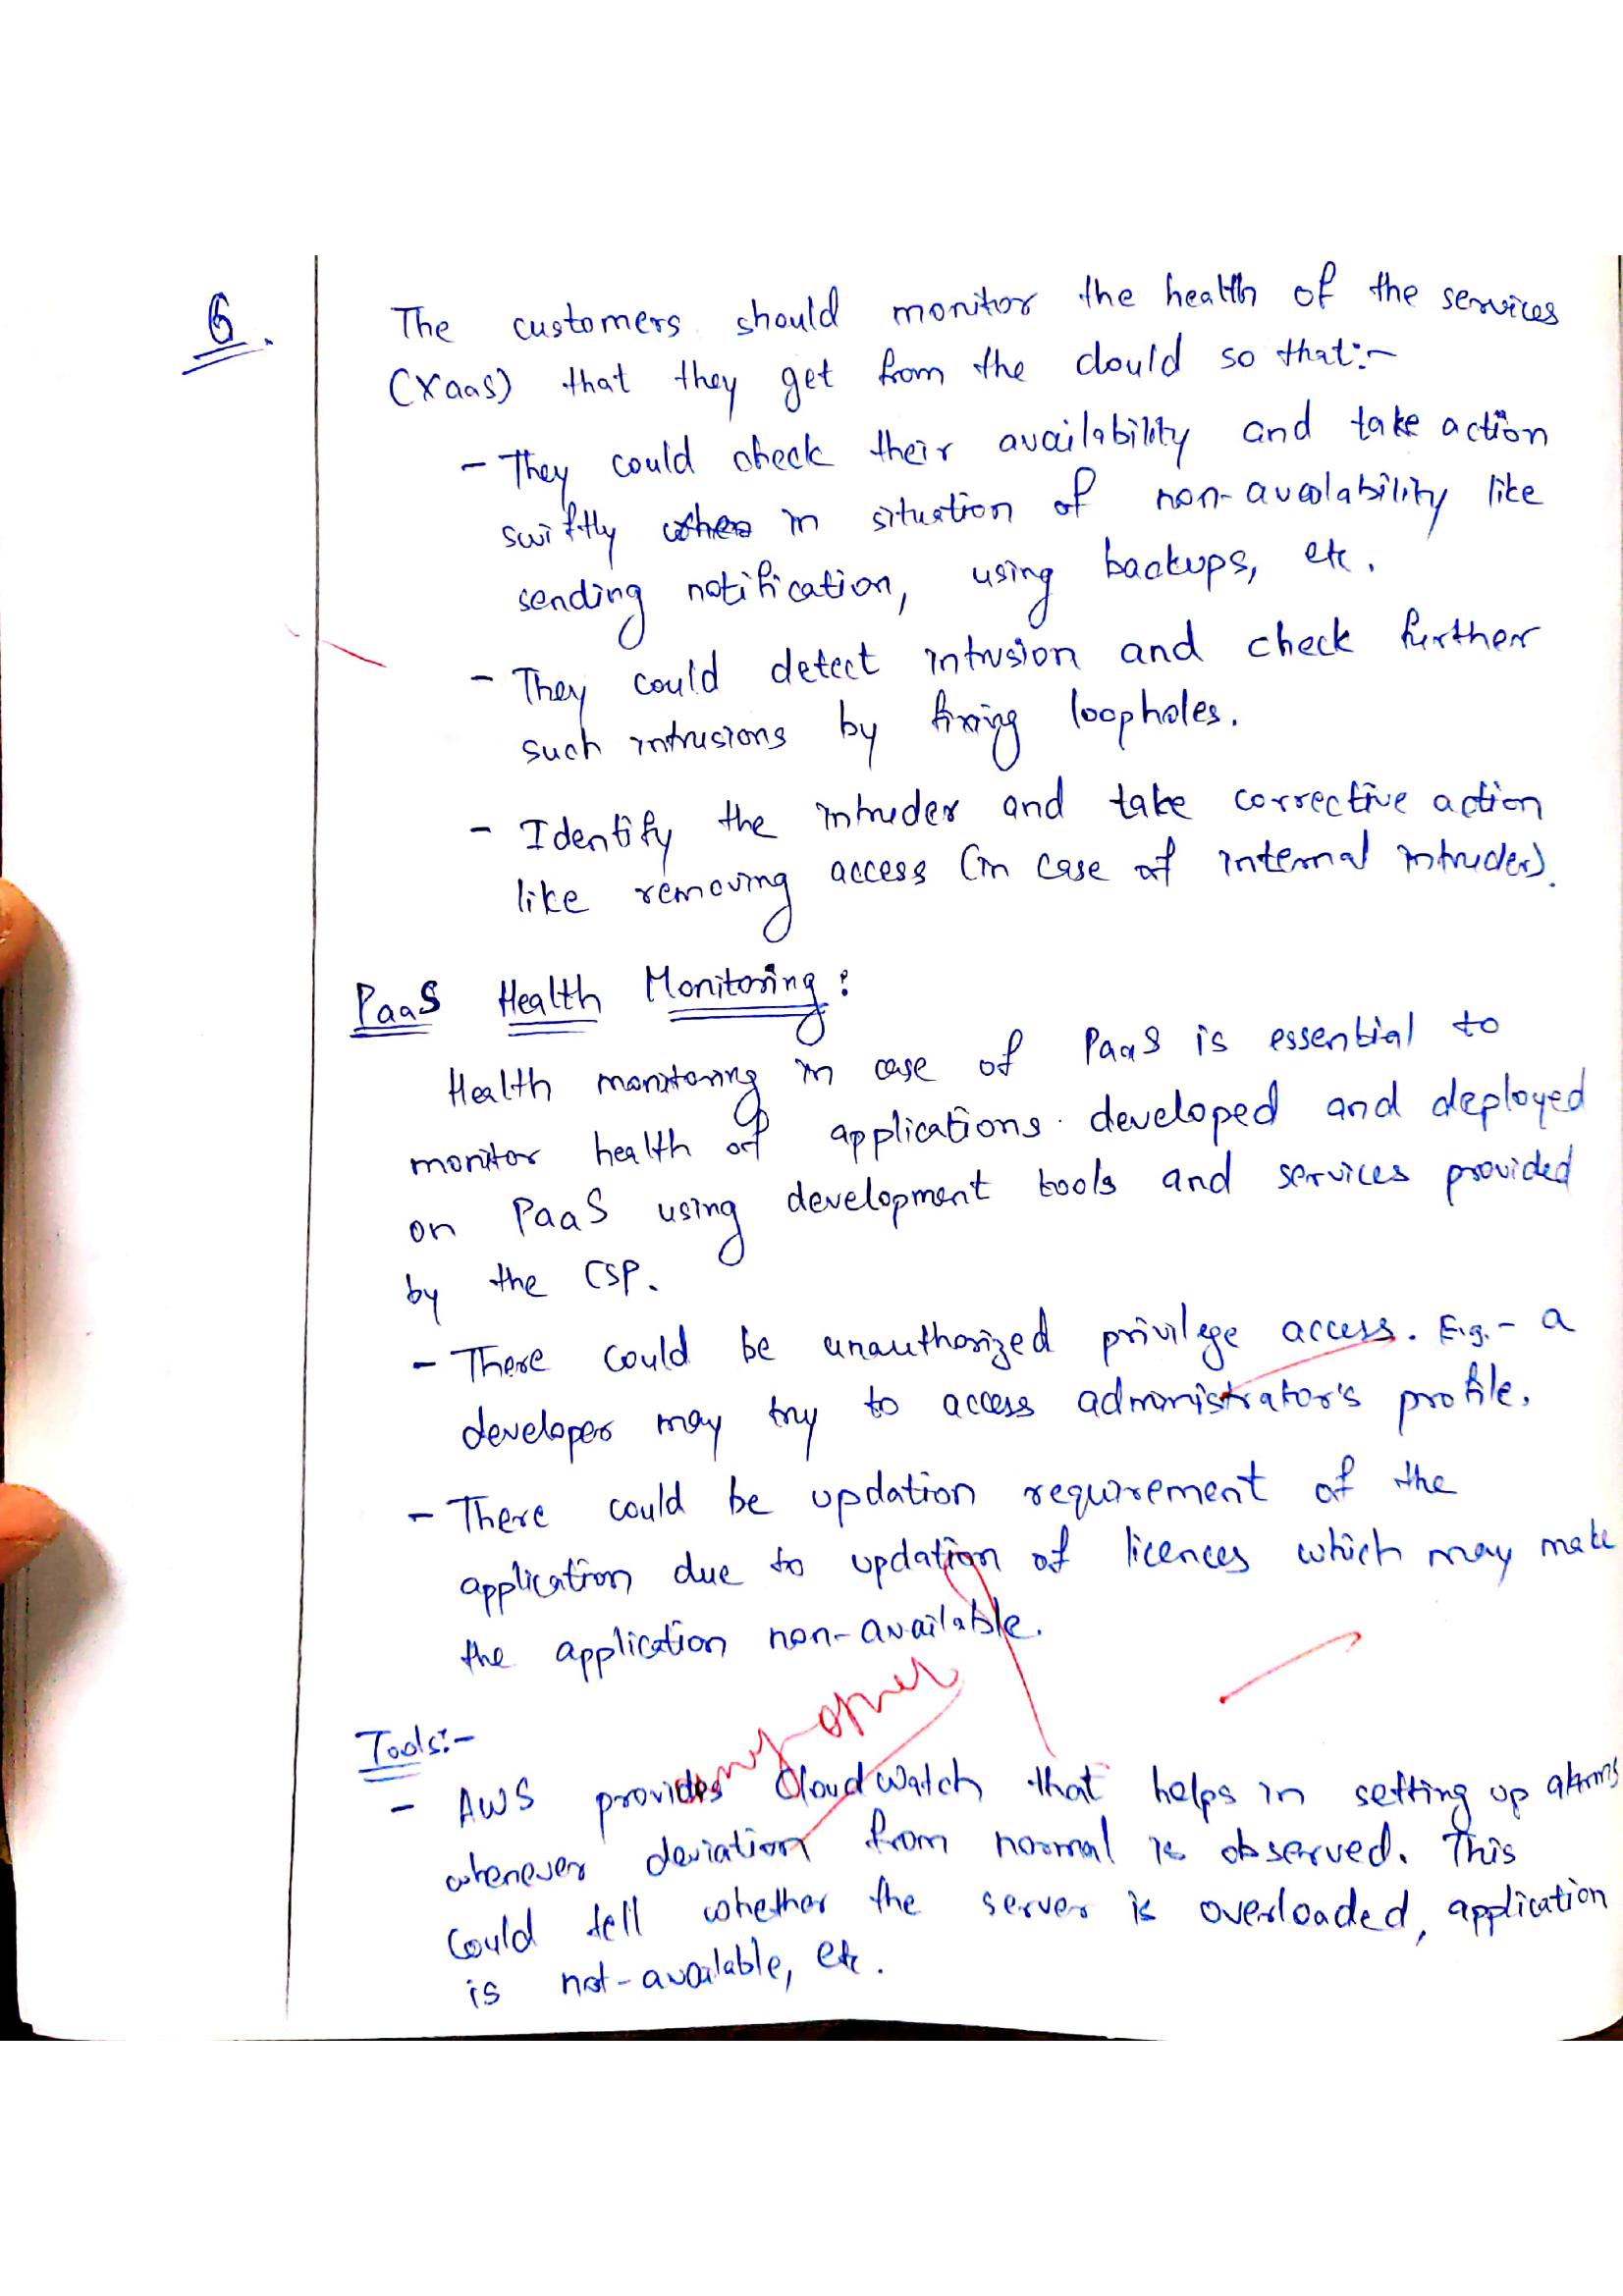 6.
The customers should monitor the health of the services
(Xaas) that they get from the clould so that:-
- They could check their availability and take action
swiftly when in situation of non-avaolability like
sending notification, using backups, etc.
- They could detect intrusion and check further
such intrusions by fixing loopholes.
- Identify the intruder and take corrective action
like removing access (in case of internal intruder).
PaaS Health Monitoring:
Health monitoring in case of PaaS is essential to
monitor health of applications developed and deployed
on PaaS using development tools and services provided
by the CSP.
- There could be unauthorized privilege access. E.g.- a
developer may try to access administrator's profile.
- There could be updation requirement of the
application due to updation of licences which may make
the application non-available.
Tools:-
any other
- AWS provides CloudWatch that helps in setting up alarms
whenever deviation from normal is observed. This
could tell whether the server is overloaded, application
is not-available, etc.